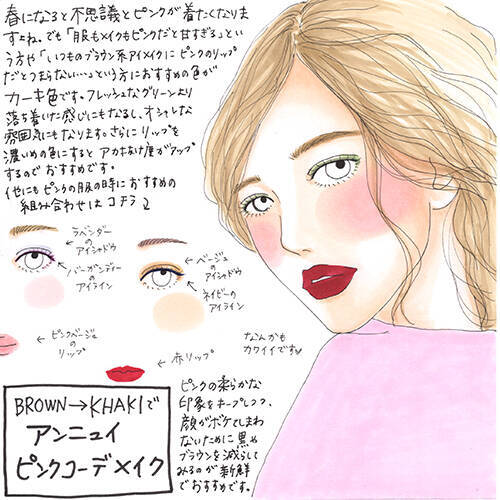 春になると不思議とピンクが着たくなりま
すよね。でも「服もメイクもピンクだと甘すぎる」とい
う方や「いつものブラウン系アイメイクにピンクのリップ
だとつまらない…。」という方におすすめの色が
カーキ色です。フレッシュなグリーンより
落ち着いた感じにもなるし、オシャレな
雰囲気にもなります。さらにリップを
濃いめの色にするとアカぬけ度がアップ
するのでおすすめです。
他にもピンクの服の時におすすめの
組み合わせはコチラ
ラベンダー
の
アイシャドウ
バーガンディー
の
アイライン
ピンクベージュ
の
リップ
ベージュ
の
アイシャドウ
ネイビーの
アイライン
赤リップ
なんかも
カワイイです
BROWN→KHAKIで
アンニュイ
ピンクコーデメイク
ピンクの柔らかな
印象をキープしつつ、
顔がボケてしまわ
ないために黒や
ブラウンを減らして
みるのが新鮮
でおすすめです。